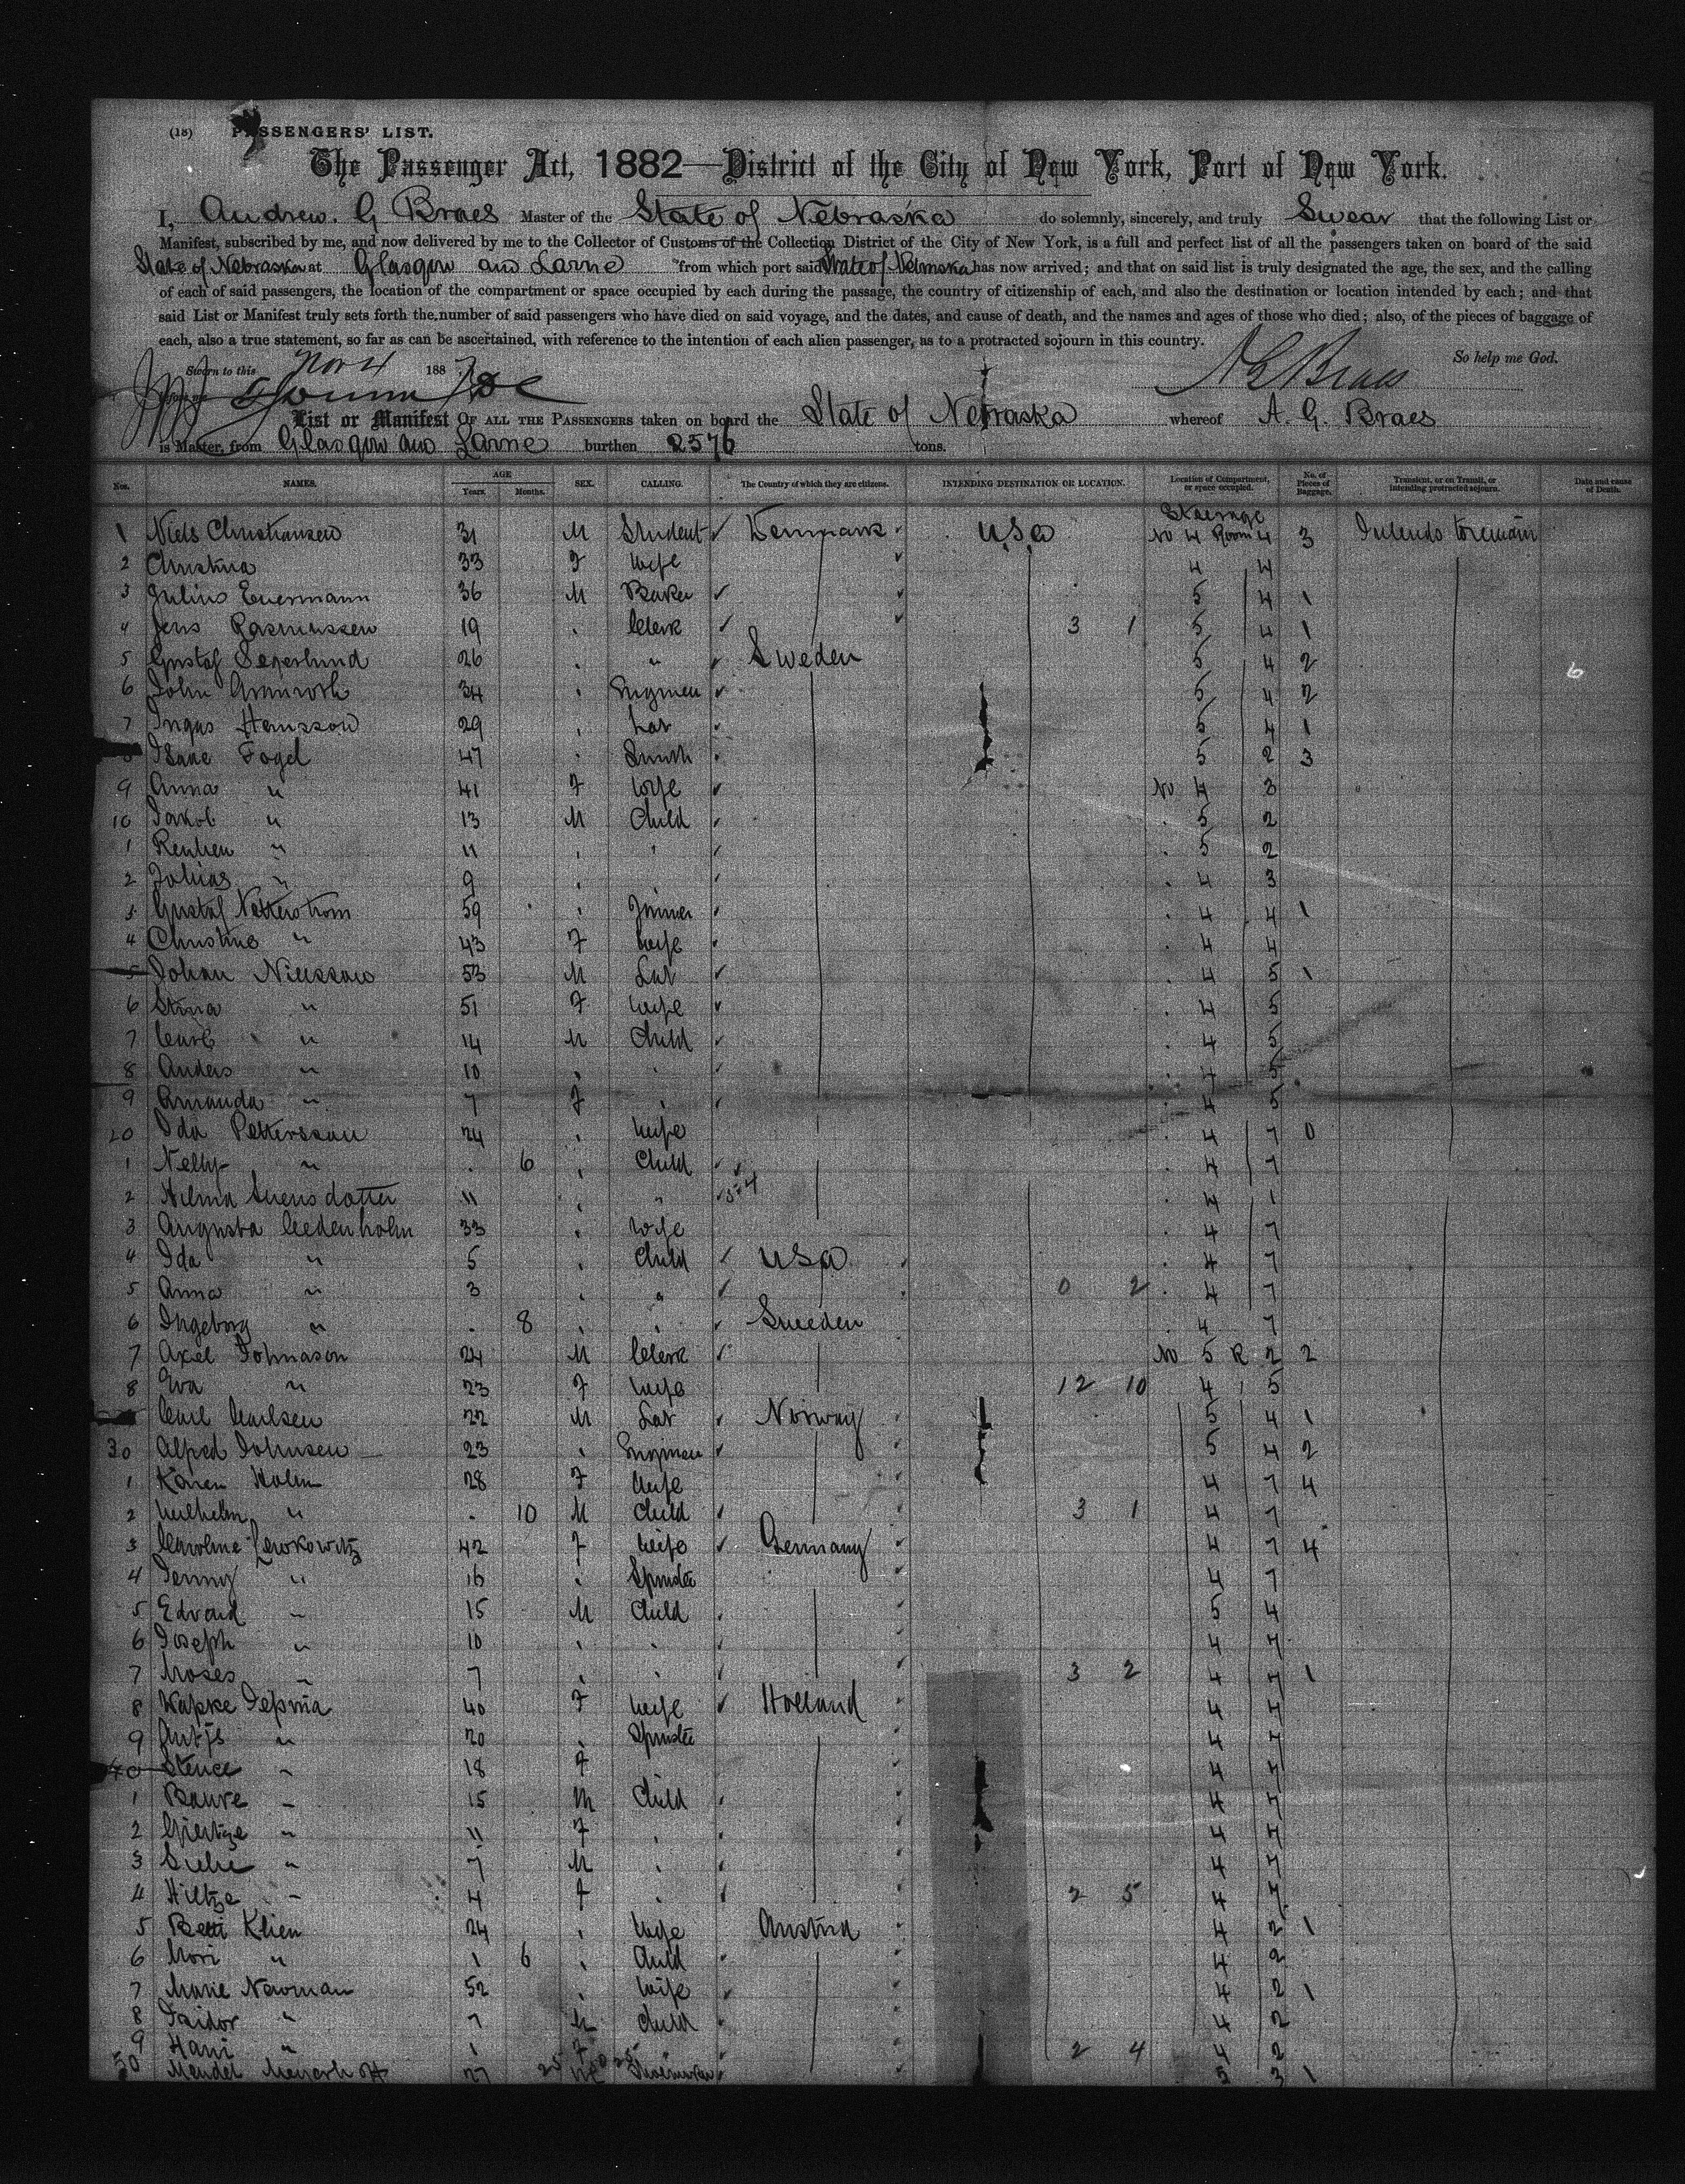 (18) PASSENGERS' LIST.
The Passenger Act, 1882—District of the City of New York, Port of New York.
I, Andrew. G Braes Master of the State of Nebraska do solemnly, sincerely, and truly Swear that the following List or
Manifest, subscribed by me, and now delivered by me to the Collector of Customs of the Collection District of the City of New York, is a full and perfect list of all the passengers taken on board of the said
State of Nebraska at Glasgow and Larne from which port said State of Nebraska has now arrived; and that on said list is truly designated the age, the sex, and the calling
of each of said passengers, the location of the compartment or space occupied by each during the passage, the country of citizenship of each, and also the destination or location intended by each; and that
said List or Manifest truly sets forth the number of said passengers who have died on said voyage, and the dates, and cause of death, and the names and ages of those who died; also, of the pieces of baggage of
each, also a true statement, so far as can be ascertained, with reference to the intention of each alien passenger, as to a protracted sojourn in this country.
So help me God.
Sworn to this Nov 4 188
A G Braes
List or Manifest OF ALL THE PASSENGERS taken on board the State of Nebraska whereof A. G. Braes
is Master, from Glasgow and Larne burthen 2576 tons.
Nos. NAMES. AGE Years. Months. SEX. CALLING. The Country of which they are citizens. INTENDING DESTINATION OR LOCATION. Location of Compartment, or space occupied. No. of Pieces of Baggage. Transient, or on Transit, or intending protracted sojourn. Date and cause of Death.
Steerage
1 Niels Christiansen 31 M Student Denmark USA No 4 Room 4 3 Intends to remain
2 Christina 33 F Wife 4 4
3 Julius Euermann 36 M Baker 5 4 1
4 Jens Rasmussen 19 Clerk 3 1 5 4 1
5 Gustaf Segerlund 26 " Sweden 5 4 2
6 John 34 Engineer 5 4 2
7 Ingas Hansson 29 Lab 5 4 1
8 Isaac Fogel 47 Smith 5 2 3
9 Anna " 41 F Wife No 4 3
10 Jakob " 13 M Child 5 2
1 Reuben " 11 5 2
2 Tobias " 9 4 3
3 Gustaf Netterstrom 59 Joiner 4 4 1
4 Christine " 43 F Wife 4 4
5 Johan Nilsson 53 M Lab 4 5 1
6 Stina " 51 F Wife 4 5
7 Carl " 14 M Child 4 5
8 Anders " 10 4 5
9 Amanda " 7 F 4 5
20 Ida Pettersson 24 Wife 4 7 0
1 Nelly " 6 Child 4 7
2 Hilma Svensdotter 11 " 4 1
3 Augusta Cedenholm 33 Wife 4 7
4 Ida " 5 Child USA 4 7
5 Anna " 3 " 0 2 4 7
6 Ingeborg " 8 Sweden 4 7
7 Axel Johnason 24 M Clerk No 5 R 2 2
8 Eva " 23 F Wife 12 10 4 5
Carl Carlsen 22 M Lab Norway 5 4 1
30 Alfred Johnsen 23 Engineer 5 4 2
1 Karen Holm 28 F Wife 4 7 4
2 Wilhelm " 10 M Child 3 1 4 7
3 Caroline Lewkowitz 42 F Wife Germany 4 7 4
4 Jenny " 16 Spinster 4 7
5 Edvard " 15 M Child 5 4
6 Joseph " 10 4 7
7 Moses " 7 3 2 4 7 1
8 Wapke Jepma 40 F Wife Holland 4 7
9 Antjs " 20 Spinster 4 7
40 Stence " 18 F 4 7
1 Bauke " 15 M Child 4 7
2 " 11 F 4 7
3 " 7 M 4 7
4 Hiltze " 4 F 2 5 4 7
5 Betti Klien 24 Wife Austria 4 2 1
6 Mori " 1 6 Child 4 2
7 Marie Newman 52 Wife 4 2 1
8 Isidor " 7 M Child 4 2
9 Hani " 1 F 2 4 4 2
50 Mendel 27 5 3 1